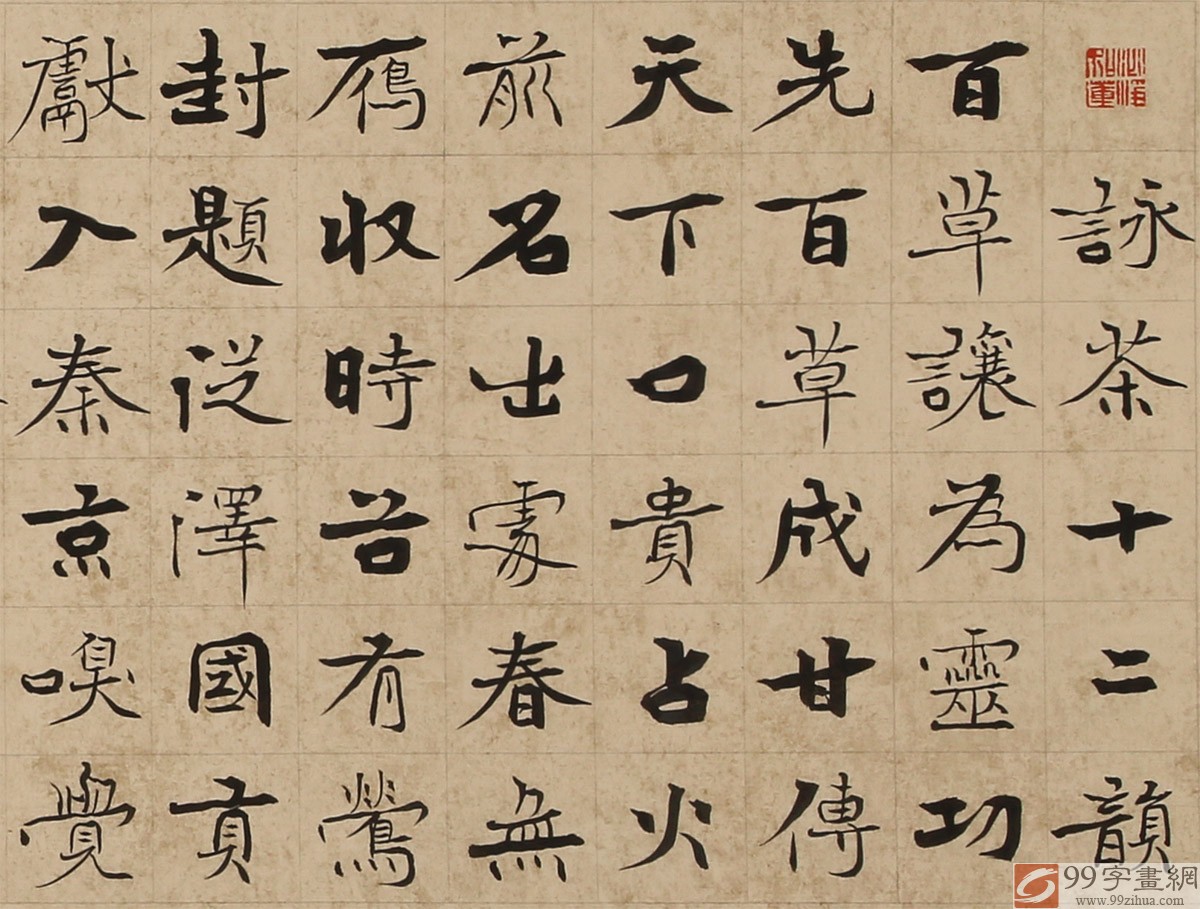 詠茶十二韻
百草讓為靈功
先百草成甘傳
天下口貴占火
前名出處春無
鴈收時谷有鶯
封題從澤國貢
獻入秦京嗅覺
99字畫網
www.99zihua.com